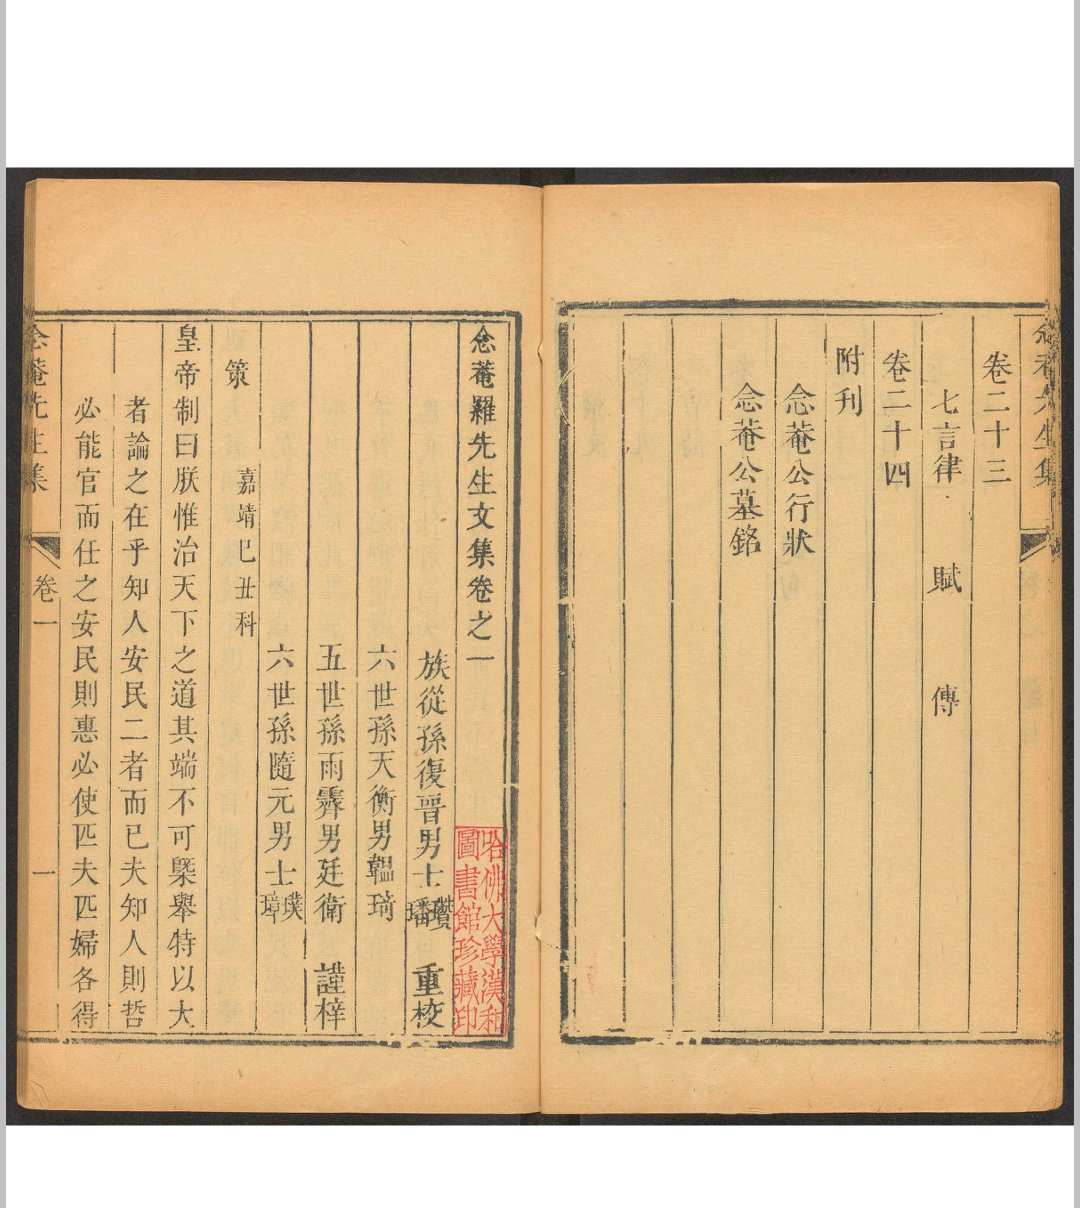 念菴先生集
卷二十三
七言律 賦 傳
卷二十四
附刊
念菴公行狀
念菴公墓銘
念菴羅先生文集卷之一
族從孫復晉男士瓚璠 重校
六世孫天衡男韞琦
五世孫雨霽男廷衛 謹梓
六世孫隨元男士璞璋
策 嘉靖巳丑科
皇帝制曰朕惟治天下之道其端不可槩舉特以大
者論之在乎知人安民二者而已夫知人則哲
必能官而任之安民則惠必使匹夫匹婦各得
念菴先生集 卷一 一
哈佛大學漢和
圖書館珍藏印